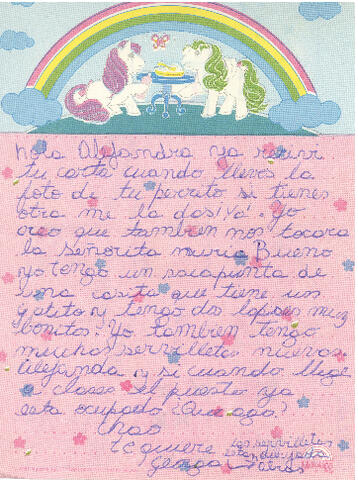 hola Alejandra ya recivi
tu carta cuando lleves la
foto de tu perrito si tienes
otra me la das! Yo
creo que tambien nos tocara
la señorita muria Bueno
yo tengo un sacapunta de
una casita que tiene un
gatito y tengo dos lapises muy
bonitos. Yo tambien tengo
muchas servilletas nuevas.
alejanda y si cuando llege
a clases el puesto ya
esta ocupado ¿Que ago?
chao
te quiere
las servilletas